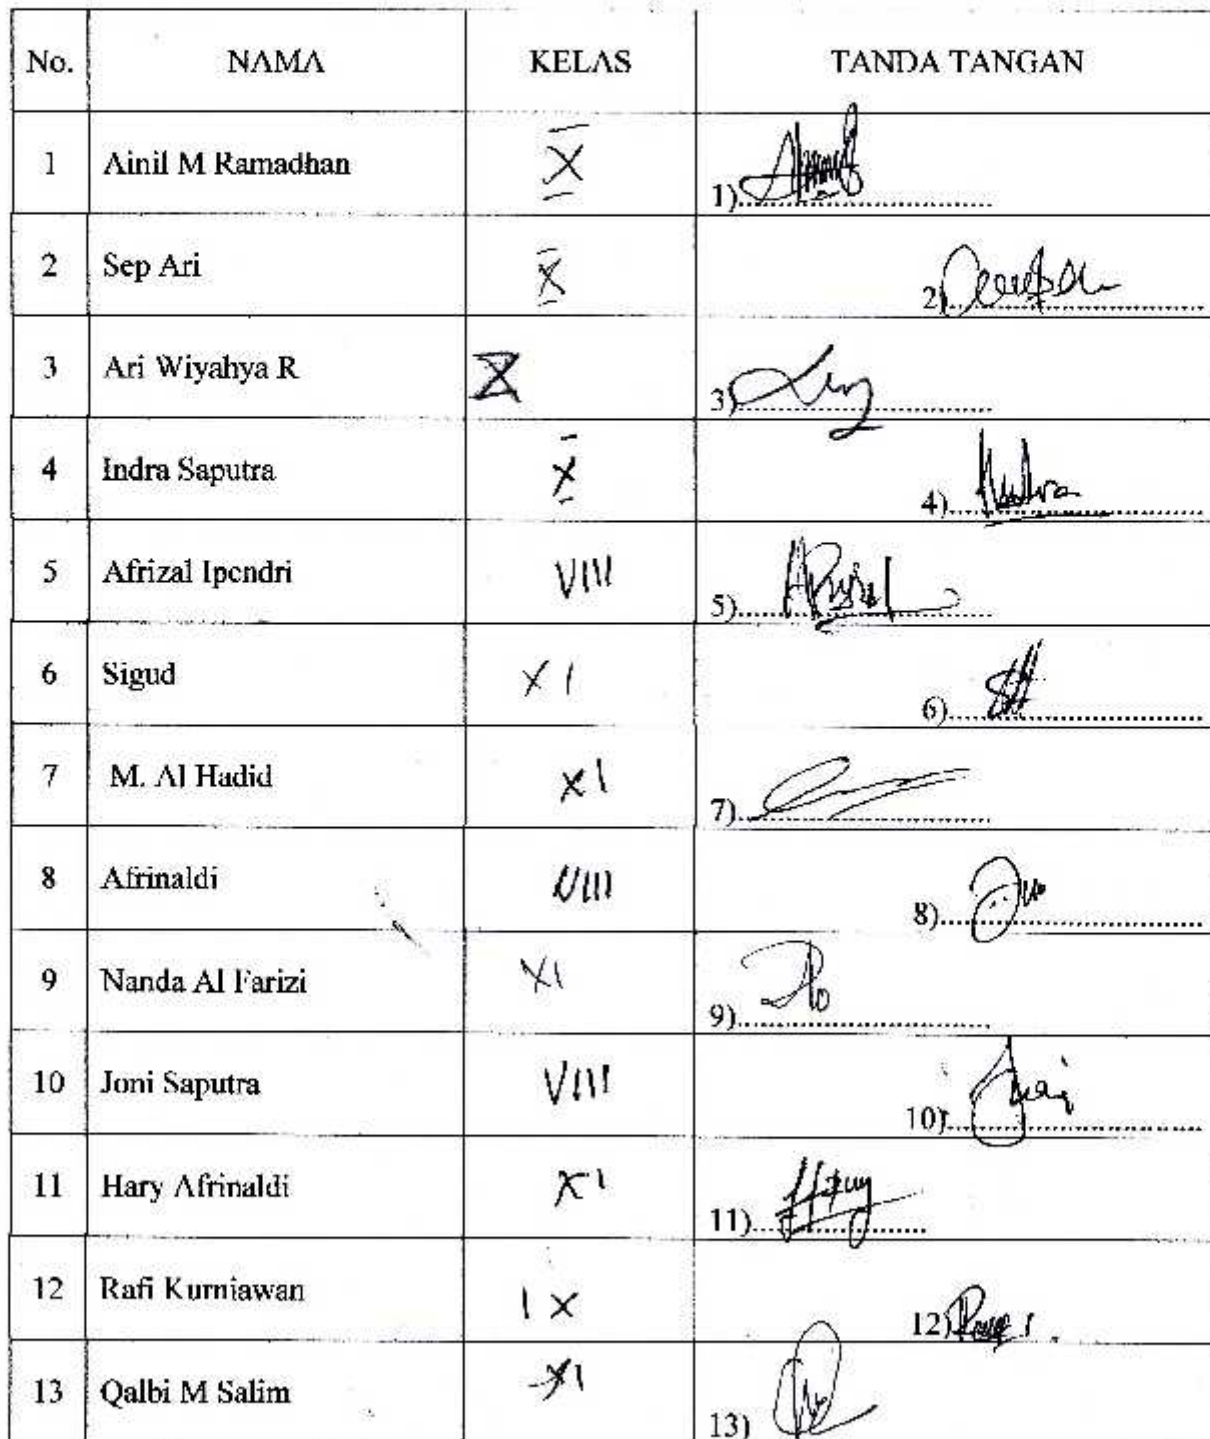 No. NAMA KELAS TANDA TANGAN
1 Ainil M Ramadhan X 1)
2 Sep Ari X 2)
3 Ari Wiyahya R X 3)
4 Indra Saputra X 4)
5 Afrizal Ipendri VIII 5)
6 Sigud XI 6)
7 M. Al Hadid XI 7)
8 Afrinaldi VIII 8)
9 Nanda Al Farizi XI 9)
10 Joni Saputra VIII 10)
11 Hary Afrinaldi XI 11)
12 Rafi Kurniawan IX 12)
13 Qalbi M Salim XI 13)